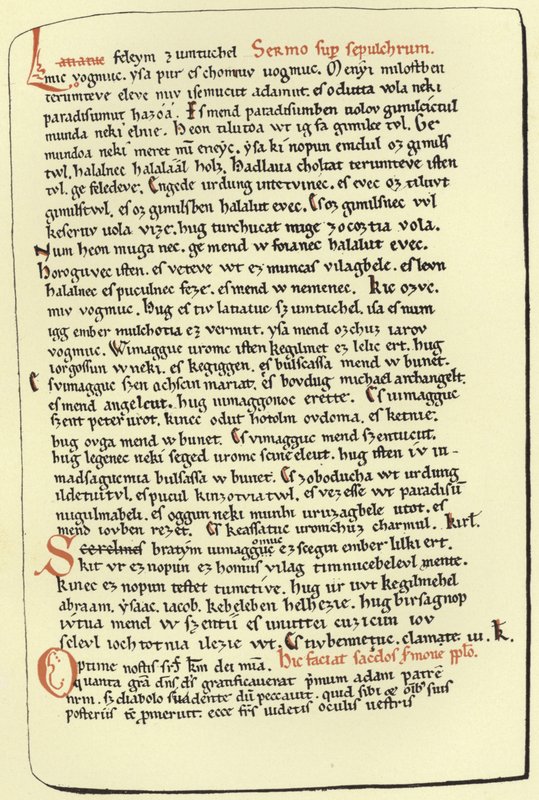 Latiatuc feleym zumtuchel Sermo sup sepulchrum.
mic vogmuc. ysa pur es chomuv uogmuc. Menyi milostben
terumteve eleve miv isemucut adamut. es odutta vola neki
paradisumut hazoá. Es mend paradisumben uolov gimilcictul
munda neki elnie. Heon tilutoa wt ig fa gimilce tvl. Ge
mundoa neki meret nū eneyc. ysa ki nopun emdul oz gimils
twl. halalnec halalaál holz. Hadlaua choltat terumteve isten
tvl. ge feledeve. Engede urdung intetvinec. es evec oz tiluvt
gimilstwl. es oz gimilsben halalut evec. Es oz gimilsnec vvl
keseruv uola vize. hug turchucat mige zocoztia vola.
Num heon muga nec. ge mend w foianec halalut evec.
Horoguvec isten. es veteve wt ez muncas vilagbele. es levn
halalnec es puculnec feze. es mend w nemenec. Kic ozvc.
miv vogmuc. Hug es tiv latiatuc szumtuchel. isa es num
igg ember mulchotia ez vermut. ysa mend ozchuz iarov
vogmuc. Wimagguc uromc isten kegilmet ez lelic ert. hug
iorgossun w neki. es kegiggen. es bulscassa mend w bunet.
Es vimagguc szen achscin mariat. es bovdug michael archangelt.
es mend angelcut. hug uimaggonoc erette. Es uimagguc
szent peter urot. kinec odut hotolm ovdonia. es ketnie.
hug ovga mend w bunet. Es vimagguc mend szentucut.
hug legenec neki seged uromc scine eleut. hug isten iv ui-
madsagucmia bulsassa w bunet. Es zoboducha wt urdung
ildetuitvl. es pucul kinzotviatwl. es vezesse wt paradisū
nugulmabeli. es oggun neki munhi uruzagbele utot. es
mend iovben rezet. Es keassatuc uromchuz charmul. kirł.
Scerelmes bratym uimaggomuc ez scegin ember lilki ert.
kit vr ez nopun ez homus vilag timnucebelevl mente.
kinec ez nopun testet tumetive. hug ur uvt kegilmehel
abraam. ysaac. iacob. kebeleben helhezie. hug birsagnop
ivtua mend w szentii es unuttei cuzicun iov
felevl iochtotnia ilezie wt. Es tivbennetuc. clamate. iii. k.
Optime nostis frs krmi dei mia. Hic faciat sacdos smone pplo.
quanta gra dns ds gratificauerat primum adam patrē
nrm. sz diabolo suadente dū peccauit. quid sibi & oibus suis
posteriis tē pmeruit. ecce frs uidetis oculis uestris